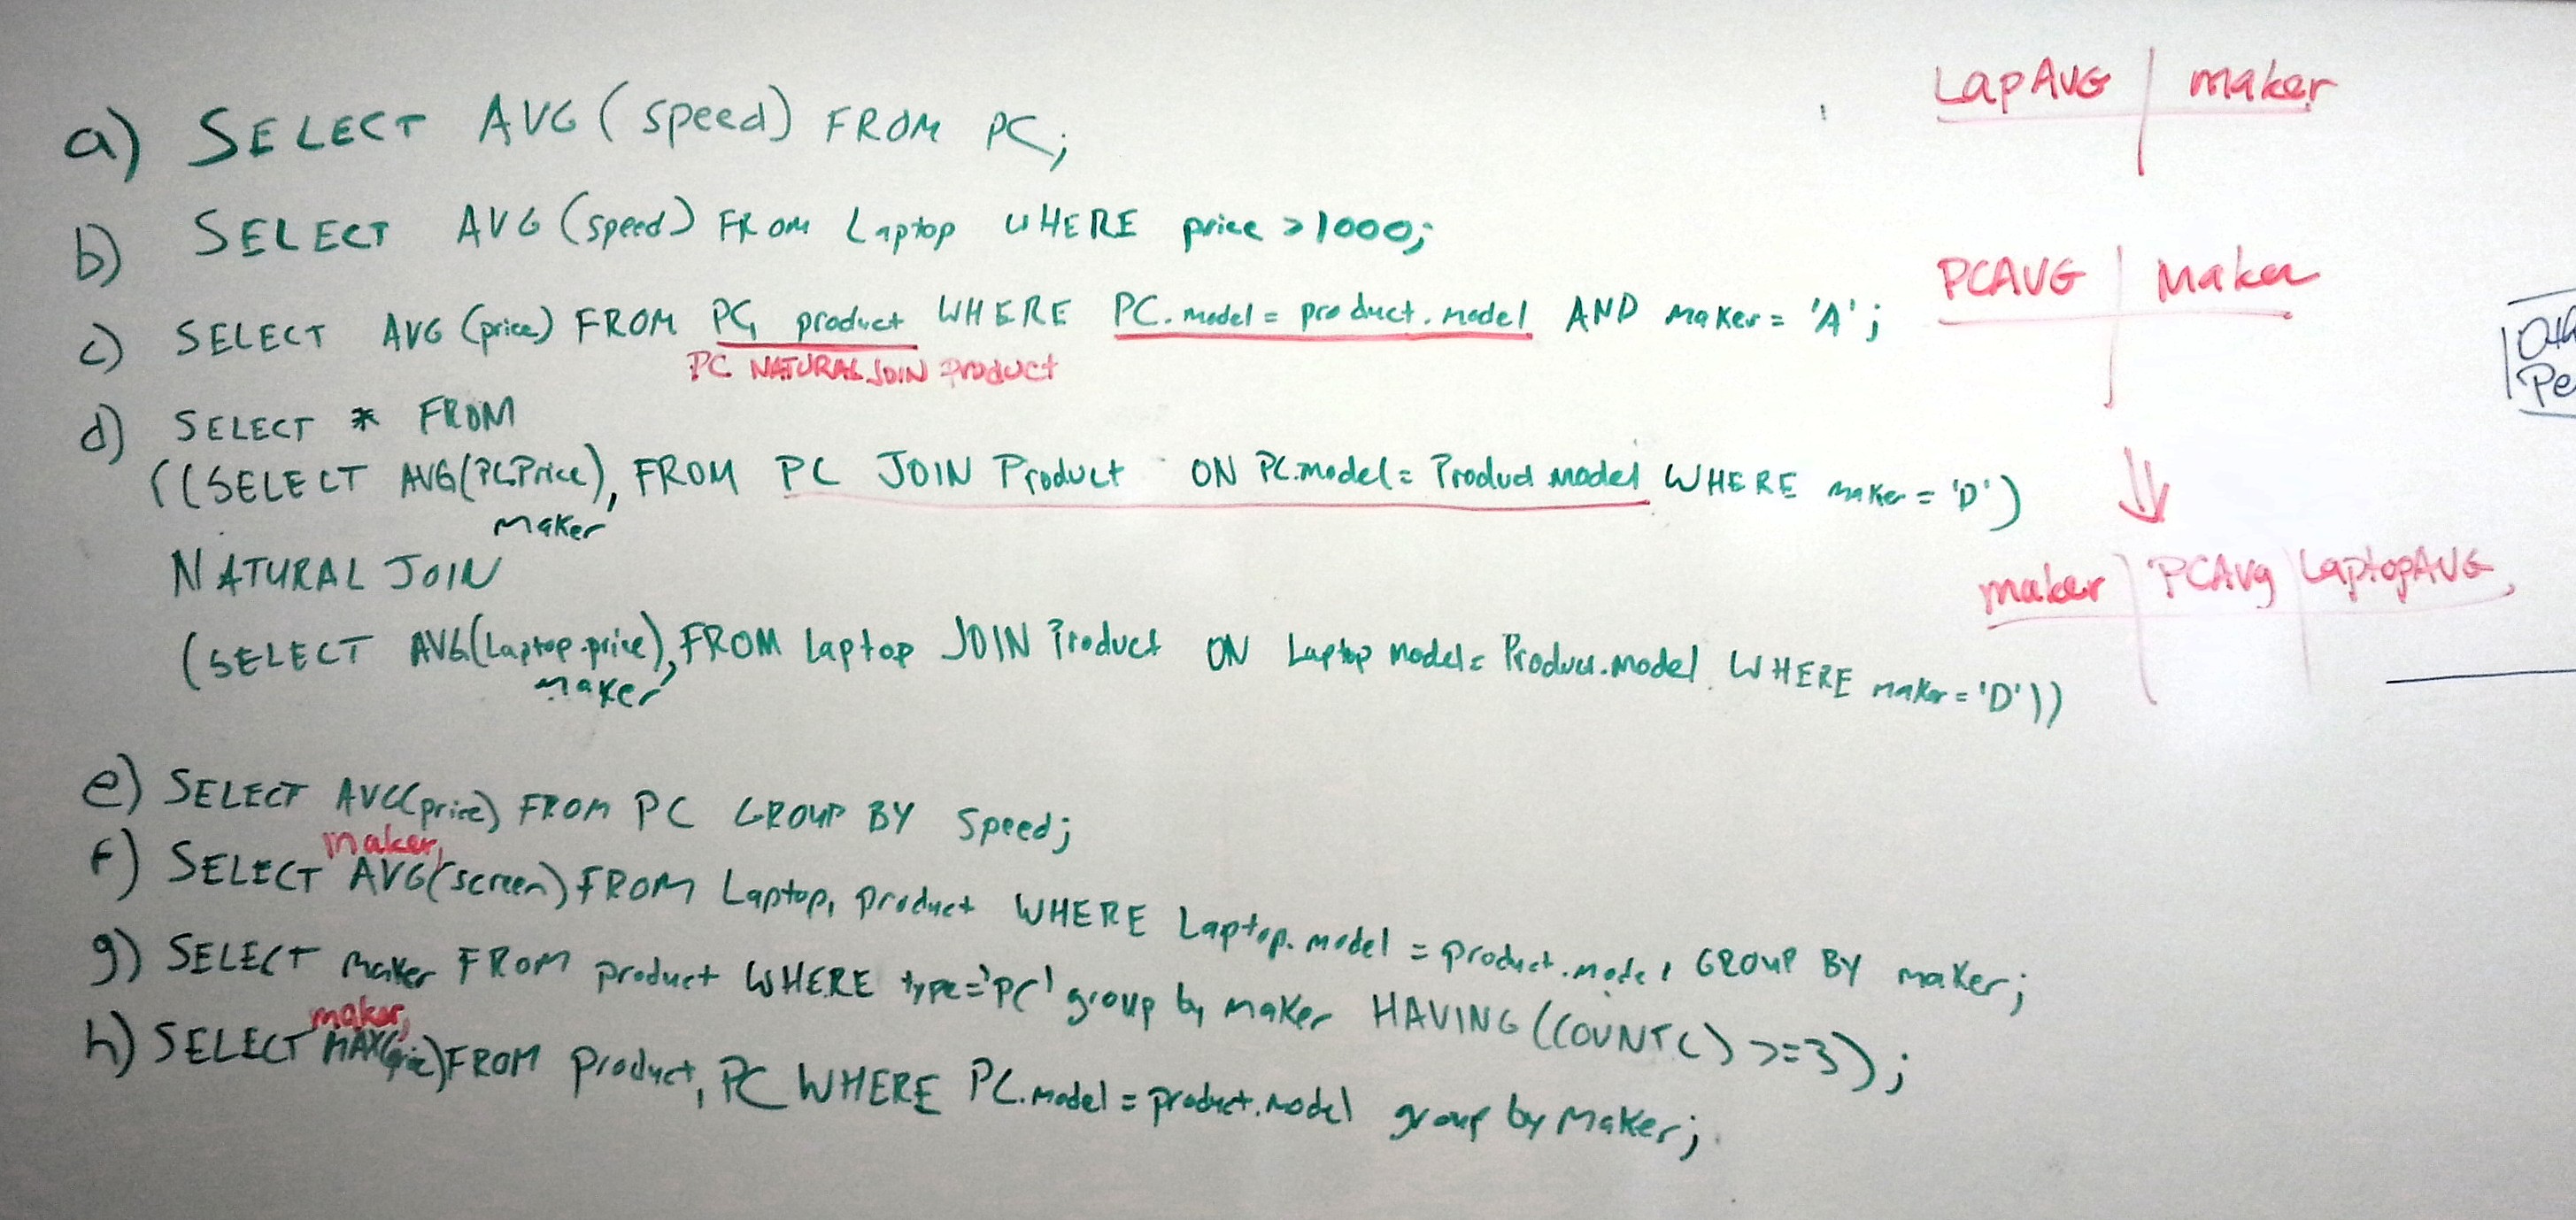 a) SELECT AVG (speed) FROM PC;
b) SELECT AVG (speed) FROM Laptop WHERE price > 1000;
c) SELECT AVG (price) FROM PC, product WHERE PC.model = product.model AND maker = 'A';
PC NATURAL JOIN product
d) SELECT * FROM
((SELECT AVG(PC.Price), FROM PC JOIN Product ON PC.model = Product model WHERE maker = 'D')
maker
NATURAL JOIN
(SELECT AVG(Laptop.price), FROM Laptop JOIN Product ON Laptop model = Product.model WHERE maker = 'D'))
maker
e) SELECT AVG(price) FROM PC GROUP BY Speed;
maker,
f) SELECT AVG(screen) FROM Laptop, product WHERE Laptop.model = product.model GROUP BY maker;
g) SELECT maker FROM product WHERE type='PC' group by maker HAVING (COUNT() >=3);
maker,
h) SELECT MAX(price) FROM Product, PC WHERE PC.model = product.model group by maker;
LapAVG maker
PCAVG Maker
maker PCAvg LaptopAVG